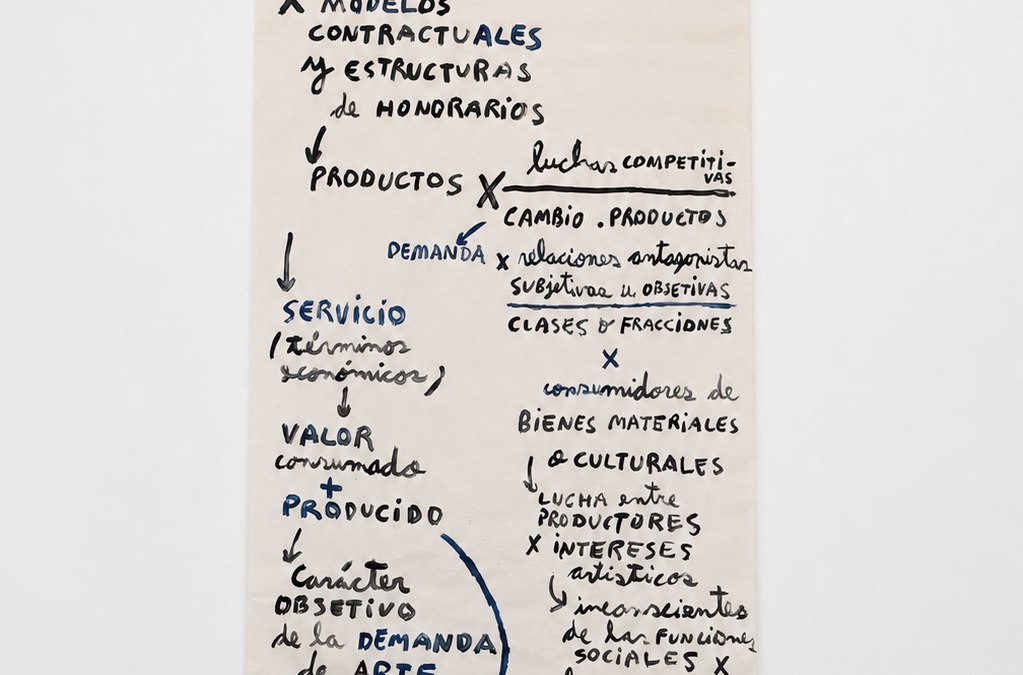 X MODELOS
CONTRACTUALES
Y ESTRUCTURAS
de HONORARIOS
PRODUCTOS X
luchas COMPETITI-
VAS
CAMBIO . PRODUCTOS
DEMANDA x relaciones antagonistas
SUBjetivas u OBSETIVAS
CLASES o FRACCIONES
X
consumidores de
BIENES MATERIALES
o CULTURALES
LUCHA entre
PRODUCTORES
X INTERESES
artisticos
inconscientes
de las FUNCIONES
SOCIALES X
SERVICIO
(términos
económicos)
VALOR
consumado
+
PRODUCIDO
Carácter
OBSETIVO
de la DEMANDA
de ARTE